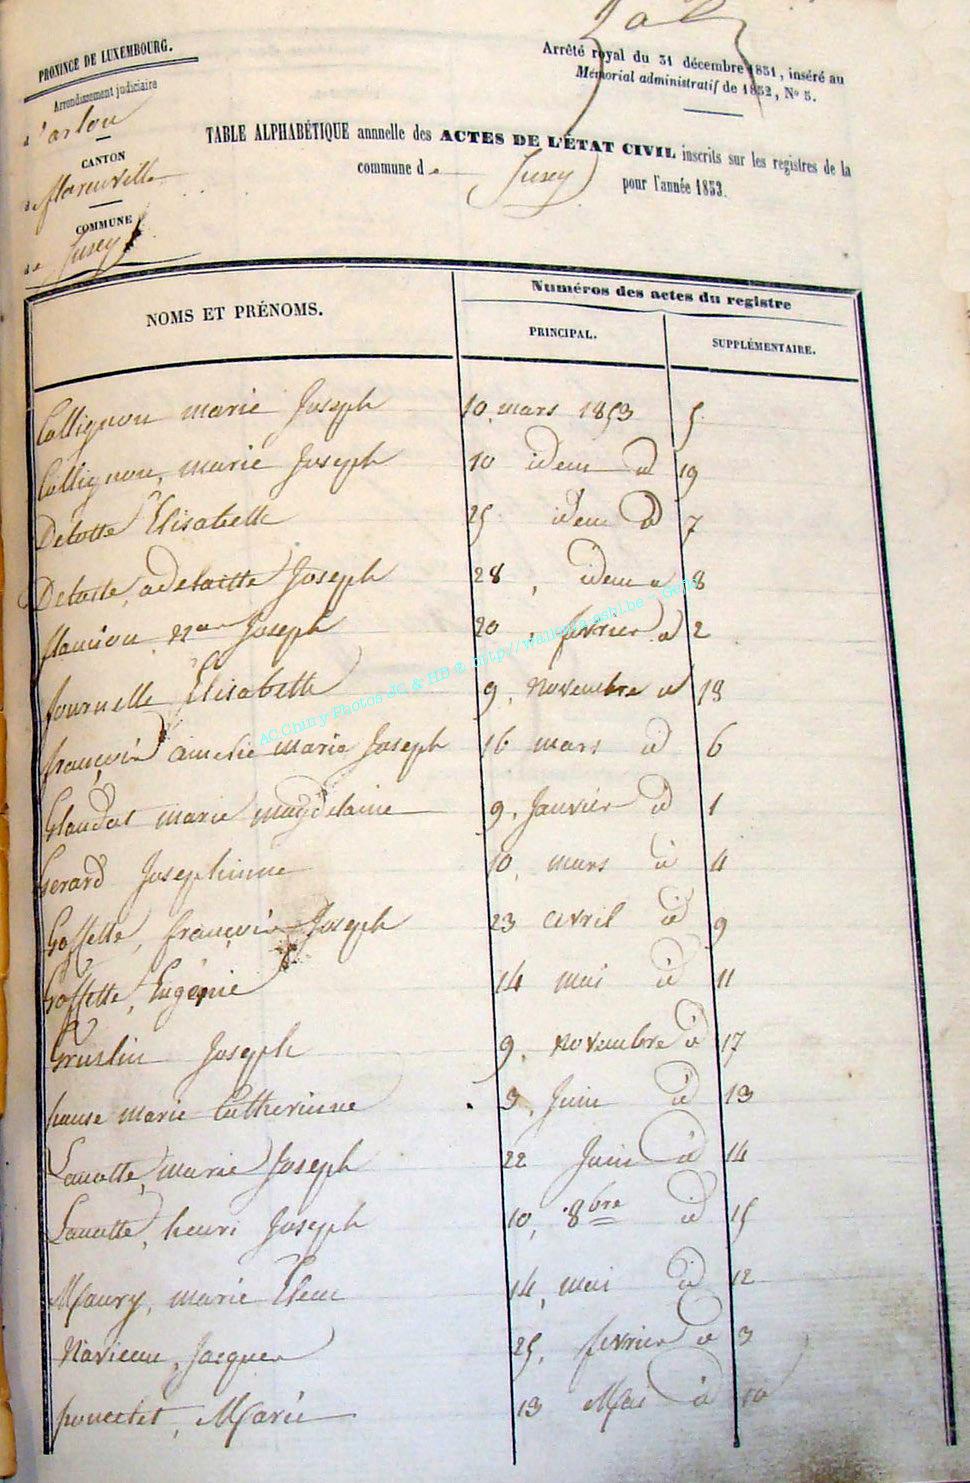 PROVINCE DE LUXEMBOURG.
Arrondissement judiciaire
d'arlon
CANTON
de florenville
COMMUNE
de Jusey
Arrêté royal du 31 décembre 1831, inséré au
Mémorial administratif de 1832, No 5.
TABLE ALPHABÉTIQUE annuelle des ACTES DE L'ÉTAT CIVIL inscrits sur les registres de la
commune de Jusey pour l'année 1853.
NOMS ET PRÉNOMS.
Numéros des actes du registre
PRINCIPAL.
SUPPLÉMENTAIRE.
Collignon marie Joseph 10, mars 1853 5
Collignon, marie Joseph 10 idem id 19
Delotte Elisabette 25 idem id 7
Delotte, adelaitte Joseph 28, idem id 8
Joseph 20, fevrier id 2
fournelle Elisabette 9, Novembre id 18
françois amelie marie Joseph 16 mars id 6
Glaudot marie magdelaine 9, Janvier id 1
Gerard Josephinne 10, mars id 4
Goffette, françois Joseph 23 avril id 9
Goffette, Eugénie 14 mai id 11
Gruslin Joseph 9, Novembre id 17
hause marie Catherinne 3, Juin id 13
Lanotte, marie Joseph 22 Juin id 14
Lanotte, henri Joseph 10, 8bre id 15
Maury, marie 14, mai id 12
Jacques 25, fevrier id 3
Marie 13 Mai id 10
AC Chiny Photos JC & HB & http//wallonia.asbl.be - Gefis